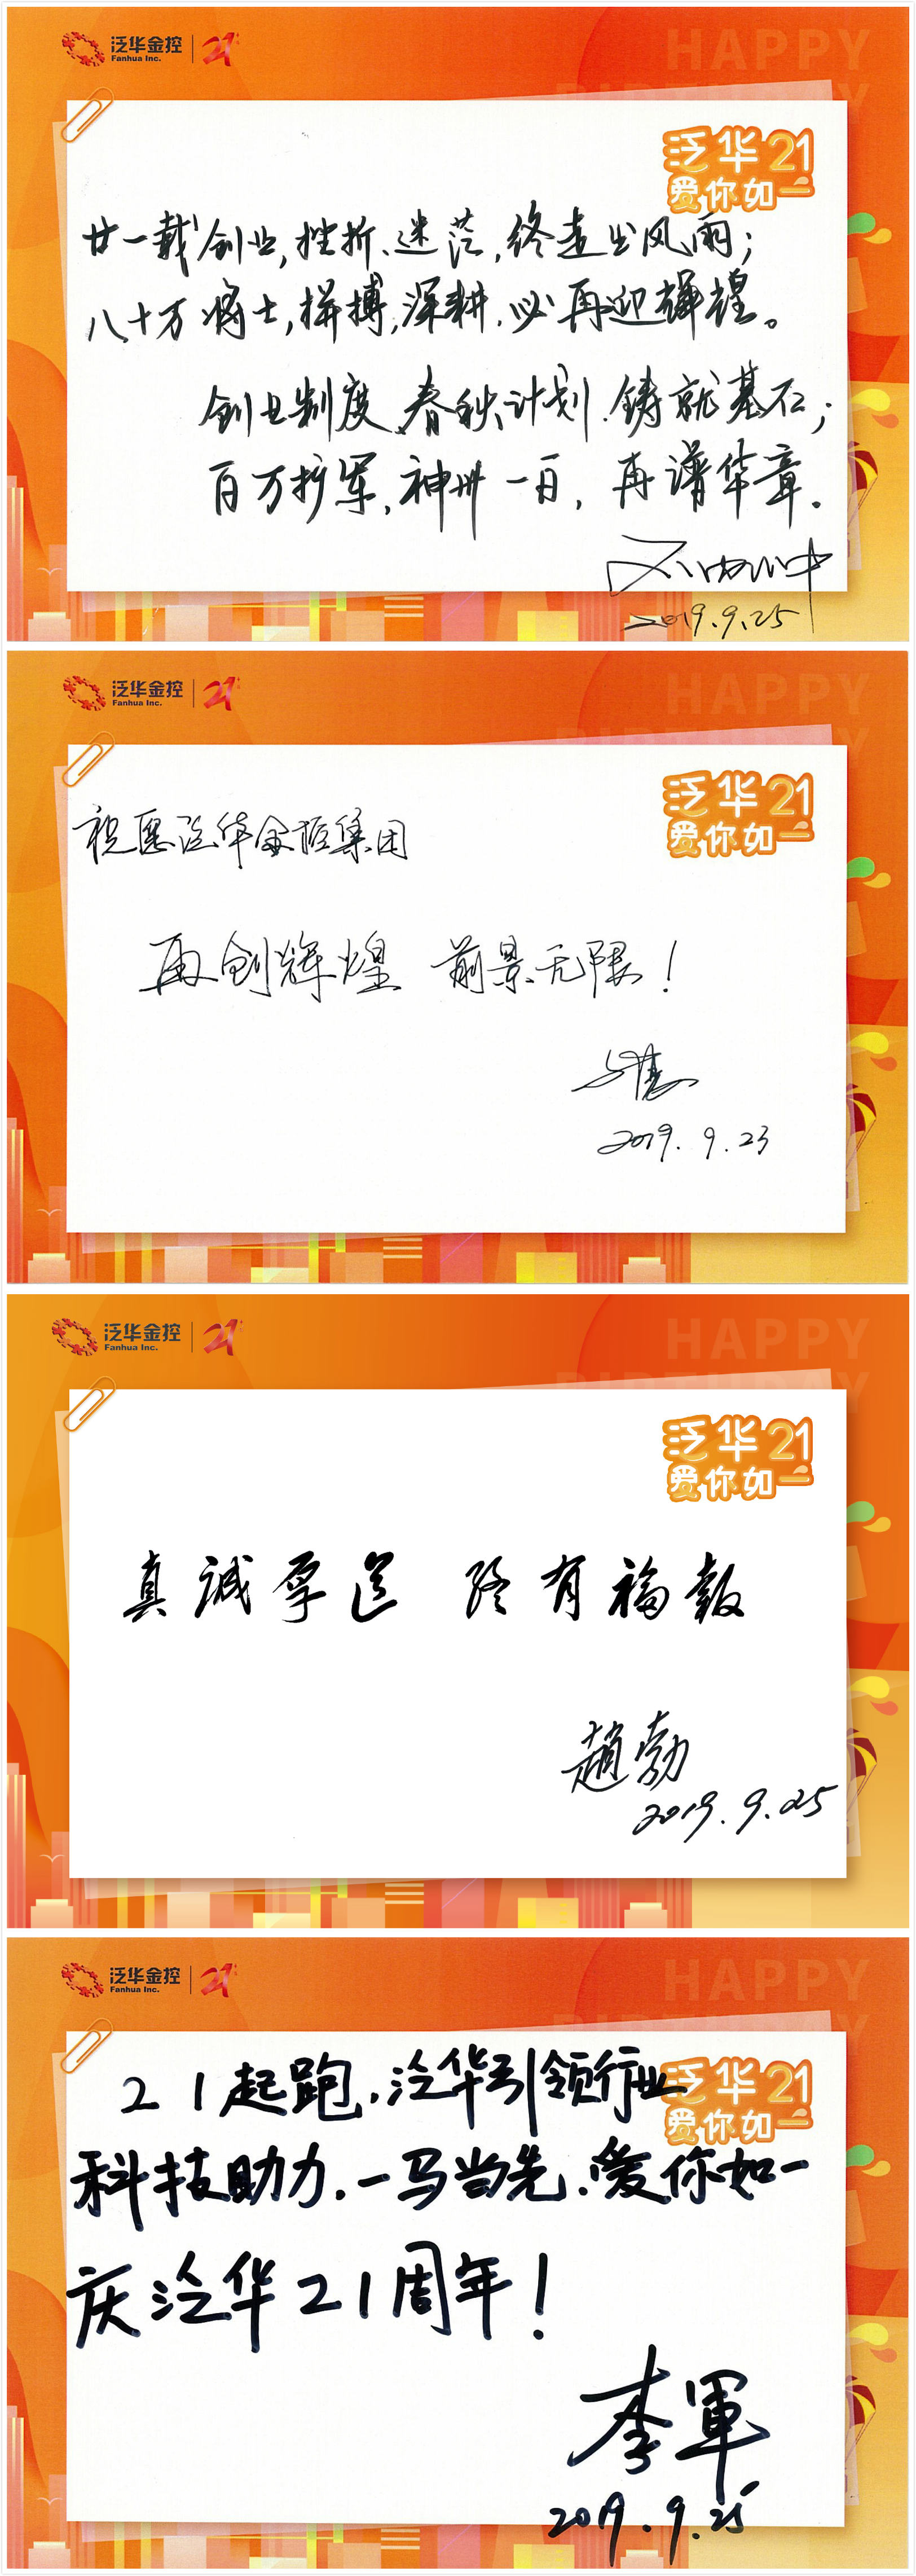 泛华金控
Fanhua Inc.
21
HAPPY
泛华21
爱你如一
廿一载创业,挫折、迷茫,终走出风雨;
八十万将士,拼搏,深耕,必再迎辉煌。
创业制度、春秋计划,铸就基石;
百万扩军,神州一日,再谱华章。
2019.9.25
泛华金控
Fanhua Inc.
21
HAPPY
泛华21
爱你如一
祝愿泛华金控集团
再创辉煌 前景无限!
2019.9.23
泛华金控
Fanhua Inc.
21
HAPPY
BIRTHDAY
泛华21
爱你如一
真诚厚道 终有福報
趙勃
2019.9.25
泛华金控
Fanhua Inc.
21
HAPPY
泛华21
爱你如一
21起跑,泛华引领行业
科技助力,一马当先,爱你如一
庆泛华21周年!
李軍
2019.9.25